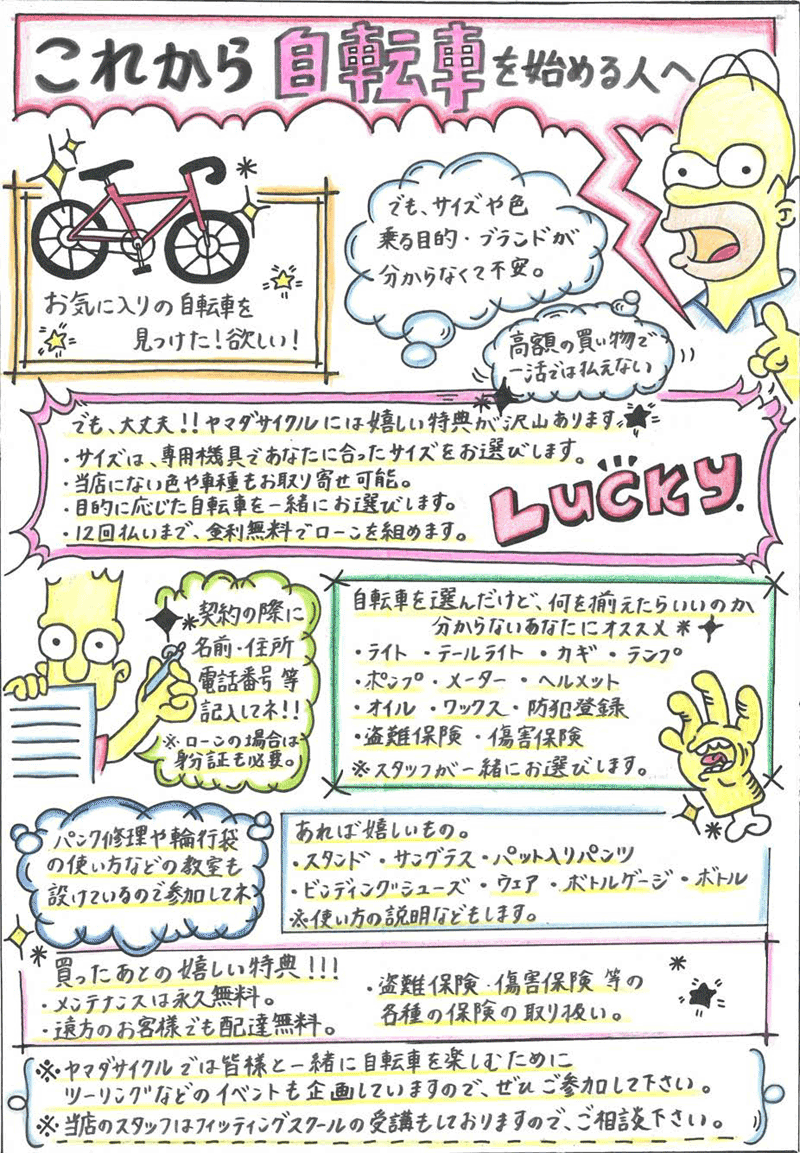 これから自転車を始める人へ
でも、サイズや色
乗る目的・ブランドが
分からなくて不安。
お気に入りの自転車を
見つけた！欲しい！
高額の買い物で
一活では払えない
でも、大丈夫！！ヤマダサイクルには嬉しい特典が沢山あります
・サイズは、専用機具であなたに合ったサイズをお選びします。
・当店にない色や車種もお取り寄せ可能。
・目的に応じた自転車を一緒にお選びします。
・12回払いまで、金利無料でローンを組めます。
LUCKY.
契約の際に
名前・住所
電話番号等
記入してネ！！
※ローンの場合は
身分証も必要。
自転車を選んだけど、何を揃えたらいいのか
分からないあなたにオススメ
・ライト ・テールライト ・カギ ・ランプ
・ポンプ ・メーター ・ヘルメット
・オイル ・ワックス ・防犯登録
・盗難保険 ・傷害保険
※スタッフが一緒にお選びします。
パンク修理や輪行袋
の使い方などの教室も
設けているので参加してネ
あれば嬉しいもの。
・スタンド ・サングラス ・パット入りパンツ
・ビンディングシューズ ・ウェア ・ボトルゲージ ・ボトル
※使い方の説明などもします。
買ったあとの嬉しい特典！！！
・メンテナンスは永久無料。
・遠方のお客様でも配達無料。
・盗難保険・傷害保険等の
各種の保険の取り扱い。
※ヤマダサイクルでは皆様と一緒に自転車を楽しむために
ツーリングなどのイベントも企画していますので、ぜひご参加して下さい。
※当店のスタッフはフィッティングスクールの受講もしておりますので、ご相談下さい。